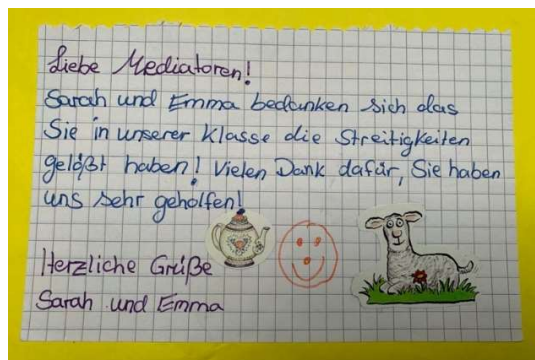 Liebe Mediatoren!
Sarah und Emma bedanken sich das
Sie in unserer Klasse die Streitigkeiten
gelößt haben! Vielen Dank dafür, Sie haben
uns sehr geholfen!
Herzliche Grüße
Sarah und Emma